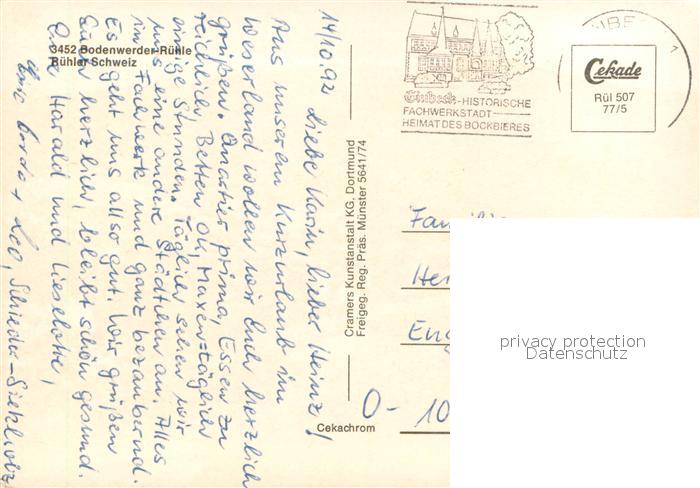 3452 Bodenwerder-Rühle
Rühler Schweiz
14/10.92 Liebe Karin, lieber Heinz!
Aus unserem Kurzurlaub im
Weserland wollen wir Euch herzlich
grüßen. Quartier prima, Essen zu
reichlich, Betten ok,
einige Stunden. Täglich sehen wir
uns eine andere Städtchen an. Alles
in Fachwerk und ganz bezaubernd.
Es geht uns allso gut. Wir grüßen
Euch herzlich, bleibt schön gesund.
Eure Harald und Lieselotte,
Leo,
Cramers Kunstanstalt KG, Dortmund
Freigeg. Reg. Präs. Münster 5641/74
Cekachrom
Einbeck-HISTORISCHE
FACHWERKSTADT
HEIMAT DES BOCKBIERES
Cekade
Rül 507
77/5
O- 10
privacy protection
Datenschutz